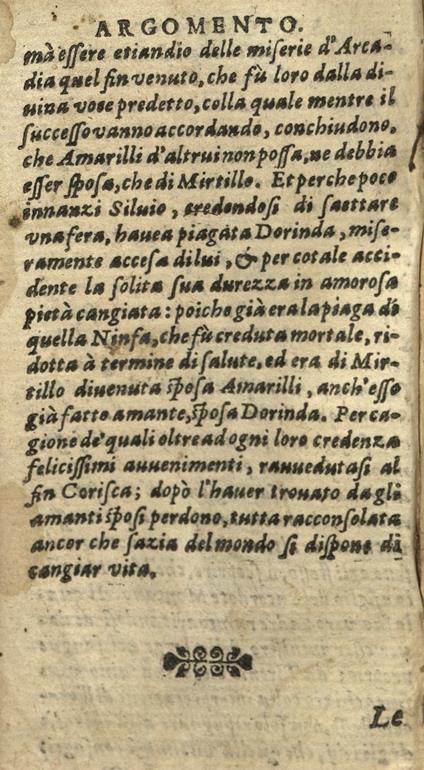 ARGOMENTO.
mà eſſere etiandio delle miſerie d'Arca-
dia quel fin venuto, che fù loro dalla di-
uina voce predetto, colla quale mentre il
ſucceſſo vanno accordando, conchiudono,
che Amarilli d'altrui non poſſa, ne debbia
eſſer ſpoſa, che di Mirtillo. Et perche poco
innanzi Siluio, credendoſi di ſaettare
vna fera, hauea piagàta Dorinda, miſe-
ramente acceſa di lui, & per cotale acci-
dente la ſolita ſua durezza in amoroſa
pietà cangiata: poiche già era la piaga di
quella Ninfa, che fù creduta mortale, ri-
dotta à termine di ſalute, ed era di Mir-
tillo diuenuta ſpoſa Amarilli, anch'eſſo
già fatto amante, ſpoſa Dorinda. Per ca-
gione de' quali oltre ad ogni loro credenza
feliciſſimi auuenimenti, rauuedutaſi al
fin Coriſca; dopò l'hauer trouato da gli
amanti ſpoſi perdono, tutta racconſolata
ancor che ſazia del mondo ſi diſpone di
cangiar vita.
Le